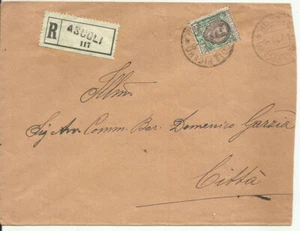 R
ASCOLI
117
Illmo
Sig Avv. Comm. Bar. Domenico Garzia
Città